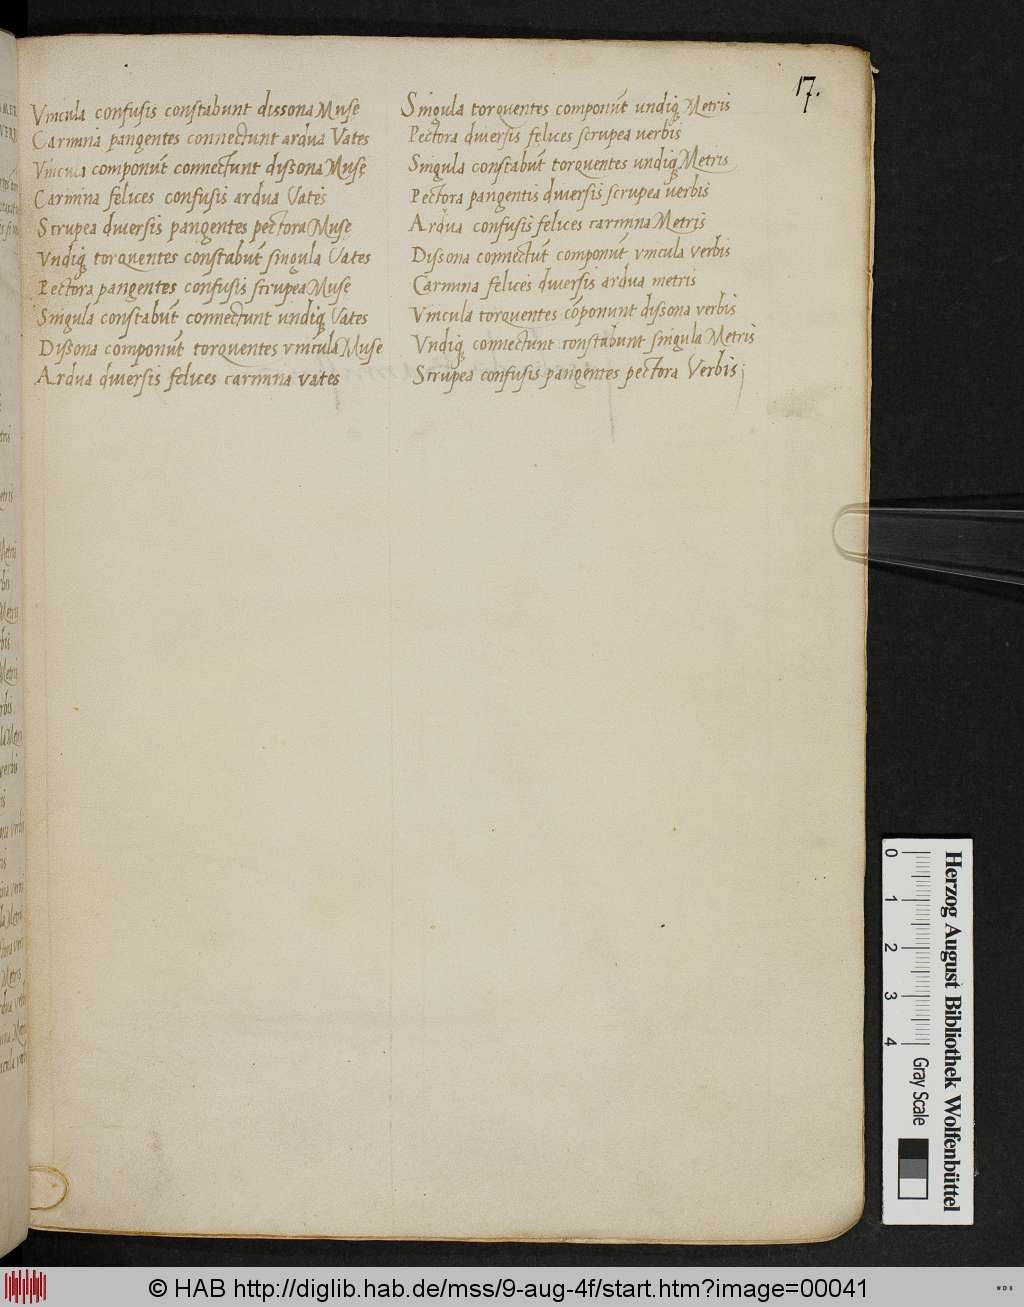 17.
Vincula confusis constabunt dissona Muse
Carmina pangentes connectunt ardua Vates
Vincula componūt connectunt dissona Muse
Carmina felices confusis ardua Vatis
Scrupea diversis pangentes pectora Muse
Vndiq torquentes constabūt singula Vates
Pectora pangentes confusis scrupea Muse
Singula constabūt connectunt undiq Vates
Dissona componūt torquentes vincula Muse
Ardua diversis felices carmina vates
Singula torquentes componūt undiq Metris
Pectora diversis felices scrupea verbis
Singula constabūt torquentes undiq Metris
Pectora pangentis diversis scrupea verbis
Ardua confusis felices carmina Metris
Dissona connectūt componūt vincula verbis
Carmina felices diversis ardua metris
Vincula torquentes cōponunt dissona verbis
Vndiq connectunt constabunt singula Metris
Scrupea confusis pangentes pectora Verbis
Herzog August Bibliothek Wolfenbüttel
0 1 2 3 4 Gray Scale
© HAB http://diglib.hab.de/mss/9-aug-4f/start.htm?image=00041